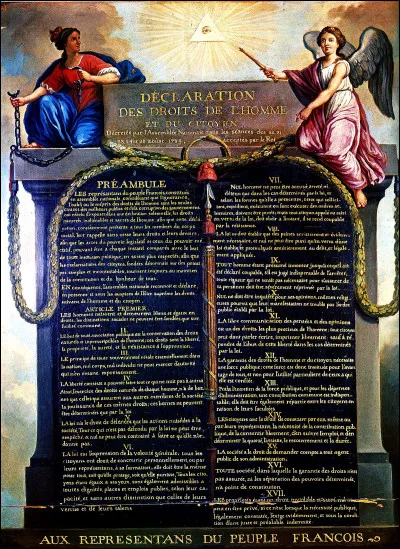 DÉCLARATION
DES DROITS DE L'HOMME
ET DU CITOYEN,
Décrétés par l'Assemblée Nationale dans les séances des 20, 21
23, 24 et 26 août 1789, acceptés par le Roi
PRÉAMBULE
LES représentans du peuple François constitués
en assemblée nationale, considérant que l'ignorance,
l'oubli ou le mépris des droits de l'homme sont les seules
causes des malheurs publics et de la corruption des gouvernemens,
ont résolu d'exposer dans une déclaration solemnelle, les droits
naturels, inaliénables et sacrés de l'homme; afin que cette décla-
ration, constamment présente à tous les membres du corps
social, leur rappelle sans cesse leurs droits et leurs devoirs;
afin que les actes du pouvoir législatif et ceux du pouvoir exé-
cutif, pouvant être à chaque instant comparés avec le but
de toute institution politique, en soient plus respectés; afin que
les réclamations des citoyens, fondées désormais sur des princi-
pes simples et incontestables, tournent toujours au maintien
de la constitution et du bonheur de tous.
EN conséquence, l'assemblée nationale reconnoît et déclare
en présence et sous les auspices de l'Être suprême les droits
suivans de l'homme et du citoyen.
ARTICLE PREMIER.
LES hommes naissent et demeurent libres et égaux en
droits; les distinctions sociales ne peuvent être fondées que sur
l'utilité commune.
II.
LE but de toute association politique est la conservation des droits
naturels et imprescriptibles de l'homme; ces droits sont la liberté,
la propriété, la sureté, et la résistance à l'oppression.
III.
LE principe de toute souveraineté réside essentiellement dans
la nation, nul corps, nul individu ne peut exercer d'autorité
qui n'en émane expressément.
IV.
LA liberté consiste à pouvoir faire tout ce qui ne nuit pas à autrui
Ainsi, l'exercice des droits naturels de chaque homme, n'a de bor-
nes que celles qui assurent aux autres membres de la société
la jouissance de ces mêmes droits; ces bornes ne peuvent
être déterminées que par la loi
V.
LA loi n'a le droit de défendre que les actions nuisibles à la
société. Tout ce qui n'est pas défendu par la loi ne peut être
empêché, et nul ne peut être contraint à faire ce qu'elle n'or-
donne pas.
VI.
LA loi est l'expression de la volonté générale; tous les
citoyens ont droit de concourir personnellement, ou par
leurs représentans, à sa formation; elle doit être la même
pour tous, soit qu'elle protege, soit qu'elle punisse. Tous les cito-
yens étant égaux à ses yeux, sont également admissibles à
toutes dignités, places et emplois publics, selon leur ca-
pacité, et sans autres distinction que celles de leurs
vertus et de leurs talens.
VII.
NUL homme ne peut être accusé, arrêté ni
détenu que dans les cas déterminés par la loi, et
selon les formes qu'elle a prescrites; ceux qui sollici-
tent, expédient, exécutent ou font exécuter des ordres arbi-
traires, doivent être punis; mais tout citoyen appelé ou saisi
en vertu de la loi, doit obéir à l'instant, il se rend coupable
par la résistance.
VIII.
LA loi ne doit établir que des peines strictement et évidem-
ment nécessaires, et nul ne peut être puni qu'en vertu d'une
loi établie et promulguée antérieurement au délit, et légale-
ment appliquée.
IX.
TOUT homme étant présumé innocent jusqu'à ce qu'il ait
été déclaré coupable, s'il est jugé indispensable de l'arrêter,
toute rigueur qui ne seroit pas nécessaire pour s'assurer de
sa personne doit être sévèrement réprimée par la loi.
X.
NUL ne doit être inquiété pour ses opinions, mêmes religi-
euses pourvu que leur manifestation ne trouble pas l'ordre
public établi par la loi.
XI.
LA libre communication des pensées et des opinions
est un des droits les plus précieux de l'homme; tout citoyen
peut donc parler, écrire, imprimer librement, sauf à ré-
pondre de l'abus de cette liberté dans les cas déterminés
par la loi.
XII.
LA garantie des droits de l'homme et du citoyen nécessite
une force publique; cette force est donc instituée pour l'avan-
tage de tous, et non pour l'utilité particuliere de ceux a qui
elle est confiée.
XIII.
POUR l'entretien de la force publique, et pour les dépenses
d'administration, une contribution commune est indispen-
sable; elle doit être également répartie entre les citoyens en
raison de leurs facultés.
XIV.
LES citoyens ont le droit de constater par eux même ou
par leurs représentans, la nécessité de la contribution pub-
lique, de la consentir librement, d'en suivre l'emploi, et d'en
déterminer la quotité, l'assiette, le recouvrement et la durée.
XV.
LA société a le droit de demander compte a tout agent
public de son administration.
XVI.
TOUTE société, dans laquelle la garantie des droits n'est
pas assurée, ni la séparation des pouvoirs déterminée,
n'a point de constitution.
XVII.
LES propriétés étant un droit inviolable et sacré, nul ne
peut en être privé, si ce n'est lorsque la nécessité publique,
légalement constatée, l'exige évidemment, et sous la condi-
tion d'une juste et préalable indemnité.
AUX REPRESENTANS DU PEUPLE FRANCOIS